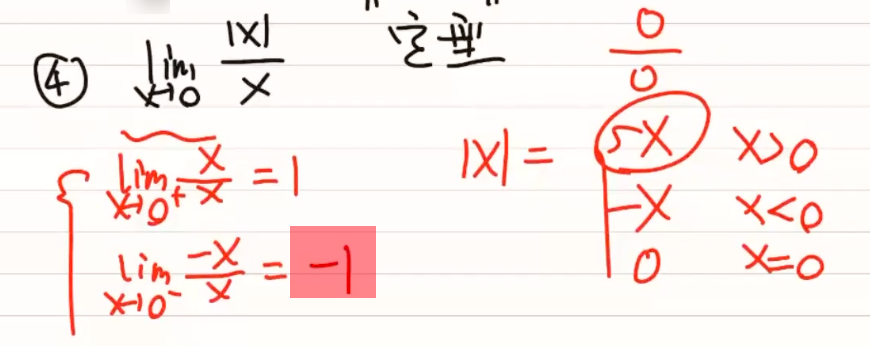 ④ lim x→0 |x|/x "定型" 0/0
lim x→0⁺ x/x = 1
lim x→0⁻ -x/x = -1
|x| = { x x>0
-x x<0
0 x=0